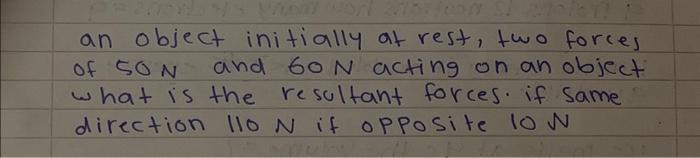 an object initially at rest, two forces
of 50 N and 60 N acting on an object
what is the resultant forces. if same
direction 110 N if opposite 10 N